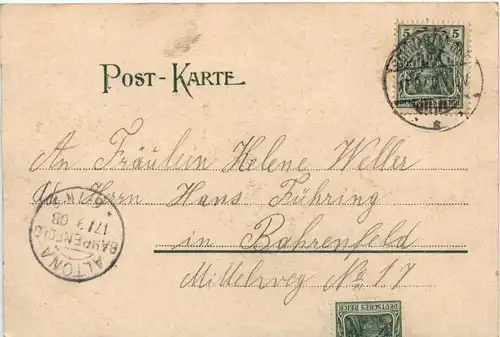 5 5
POST-KARTE
An Fräulein Helene Weller
Herrn Hans Führing
in Bahrenfeld
Mittelweg No. 17
ALTONA
BAHRENFELD
DEUTSCHES REICH